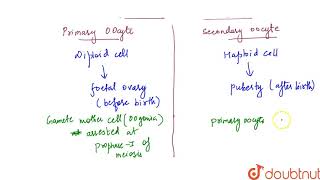 Primary OOcyte
Diploid cell
foetal ovary
(before birth)
Gamete mother cell (oogonia)
arrested at
prophase-I of
meiosis
Secondary oocyte
Haploid cell
puberty (after birth)
primary oocyte
doubtnut